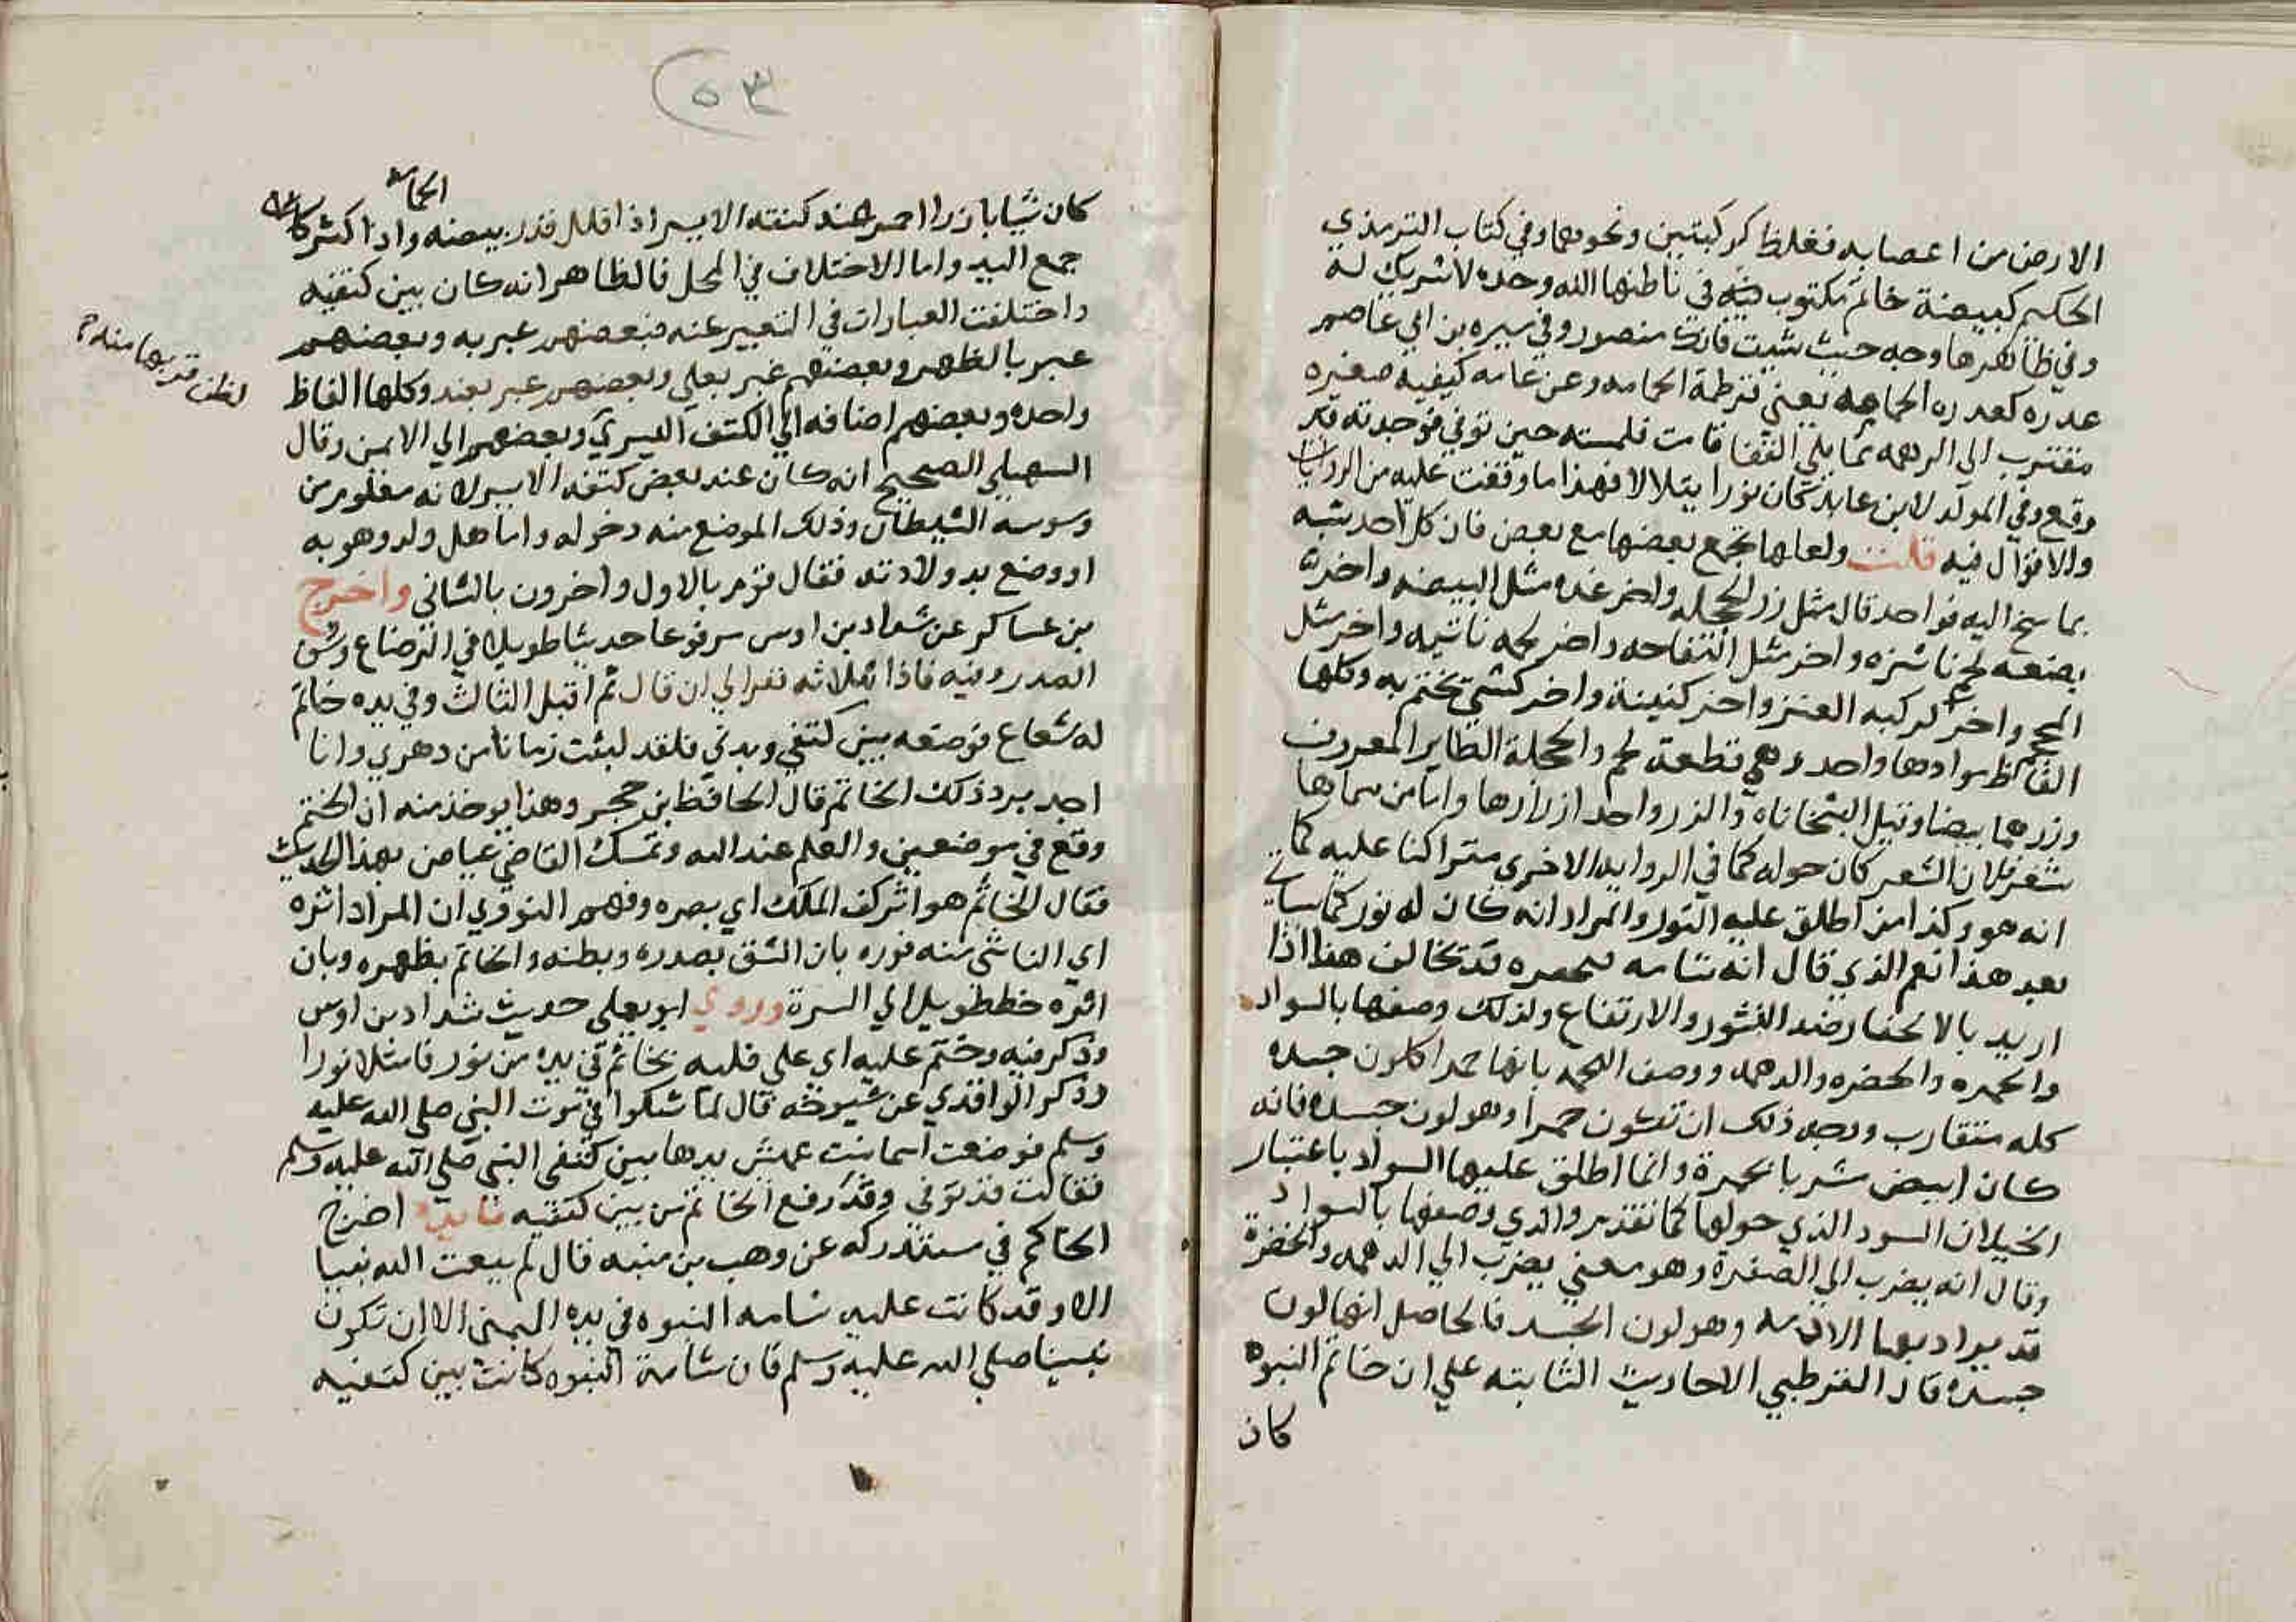 الارض من اعصابه فغلظ كركبتين ونحوهما وفي كتاب الترمذي
الحكيم كبيضة خاتم مكتوب فيه في باطنها الله وحده لا شريك له
وفي ظاهرها وجه حيث شيت فانك منصور وفي سيره بن ابي عاصم
عدره كعدره الحمامه يعني قرطمة الحمامه وعن عامه كيفيه صغيره
مقترب الى الدهمه مما يلي القفا قامت فلمسته حين توفي فوجدته قد
رفع وفي المولد لابن عايد كان نورا يتلالا فهذا ما وقفت عليه من الروايات
والاقوال فيه قلت ولعلها تجمع بعضها مع بعض فان كلا احد شبه
بما سنح اليه فواحد قال مثل زر الحجله واخر غده مثل البيضه واخر
بضعه لحم ناشزه واخر مثل التفاحه واخر لحمه ناتيه واخر مثل
المحجم واخر كركبه العنز واخر كبينة واخر كشي يختم به وكلها
الفاظ موادها واحد وهي قطعة لحم والحجلة الطاير المعروف
وزرهما بيضا وقيل البشخاناه والزر واحد ازرارها واما من سماها
شعر فلان الشعر كان حوله كما في الروايه الاخرى متراكنا عليه كما
انه هو وكذا من اطلق عليه النور والمراد انه كان له نور كما سياتي
بعد هذا نعم الذي قال انه شامه محفره قد تخالف هذا اذا
اريد بالاحتفار ضد النشور والارتفاع ولذلك وصفها بالسواد
والحمره والخضره والدهمه ووصف اللحمه بانها حمرا كلون جسده
كله متقارب ووجه ذلك ان تكون حمرا وهو لون جسده فانه
كان ابيض شربا بحمرة وانما اطلق عليها السواد باعتبار
الخيلان السود الذي حولها كما تقدم والذي وصفها بالسواد
وقال انه يضرب الي الصفره وهو معني يضرب الي الدهمه والخضرة
قد يراد بها الادمه وهو لون الجسد فالحاصل انها لون
جسده قال القرطبي الاحاديث الثابته علي ان خاتم النبوه
كان
٥٣
كان شيا بارزا احمر عند كتفه الايسر اذا قلل قدر بيضه الحمامه واذا كثر كان
جمع اليد واما الاختلاف في المحل فالظاهر انه كان بين كتفيه
واختلفت العبارات في التعبير عنه فبعضهم عبر به وبعضهم
عبر بالظهر وبعضهم عبر بعلي وبعضهم عبر بعند وكلها الفاظ
واحده وبعضهم اضافه الي الكتف اليسري وبعضهم الي الايمن وقال
لفظ قربها منه
السهيلي الصحيح انه كان عند بعض كتفه الايسر لانه معلوم من
وسوسه الشيطان وذلك الموضع منه دخوله واما هل ولد وهو به
او وضع بعد ولادته فقال قوم بالاول واخرون بالثاني واخرج
بن عساكر عن شداد بن اوس مرفوعا حديثا طويلا في الرضاع وشق
الصدر وفيه فاذا بثلاثه نفر الي ان قال ثم اقبل الثالث وفي يده خاتم
له شعاع فوضعه بين كتفي وبدني فلقد لبثت زمانا من دهري وانا
اجد برد ذلك الخاتم قال الحافظ بن حجر وهذا يوخذ منه ان الختم
وقع في موضعين والعلم عند الله وتمسك القاضي عياض بهذا الحديث
فقال الخاتم هو اثر كف الملك اي بصره وفهم النووي ان المراد اثره
اي الناشي منه فورده بان الشق بصدره وبطنه والخاتم بظهره وبان
اثره خط طويل الي السرة وروي ابو يعلي حديث شداد بن اوس
وذكر فيه وختم عليه اي علي قلبه بخاتم في يده من نور فامتلا نورا
وذكر الواقدي عن شيوخه قال لما شكوا في موت النبي صلي الله عليه
وسلم فوضعت اسما بنت عميش يدها بين كتفي النبي صلي الله عليه وسلم
فقالت قد توفي وقد رفع الخاتم من بين كتفيه فايده اخرج
الحاكم في مستدركه عن وهب بن منبه قال لم يبعث الله نبيا
الا وقد كانت عليه شامه النبوه في يده اليمني الا ان تكون
نبينا صلي الله عليه وسلم فان شامة النبوه كانت بين كتفيه